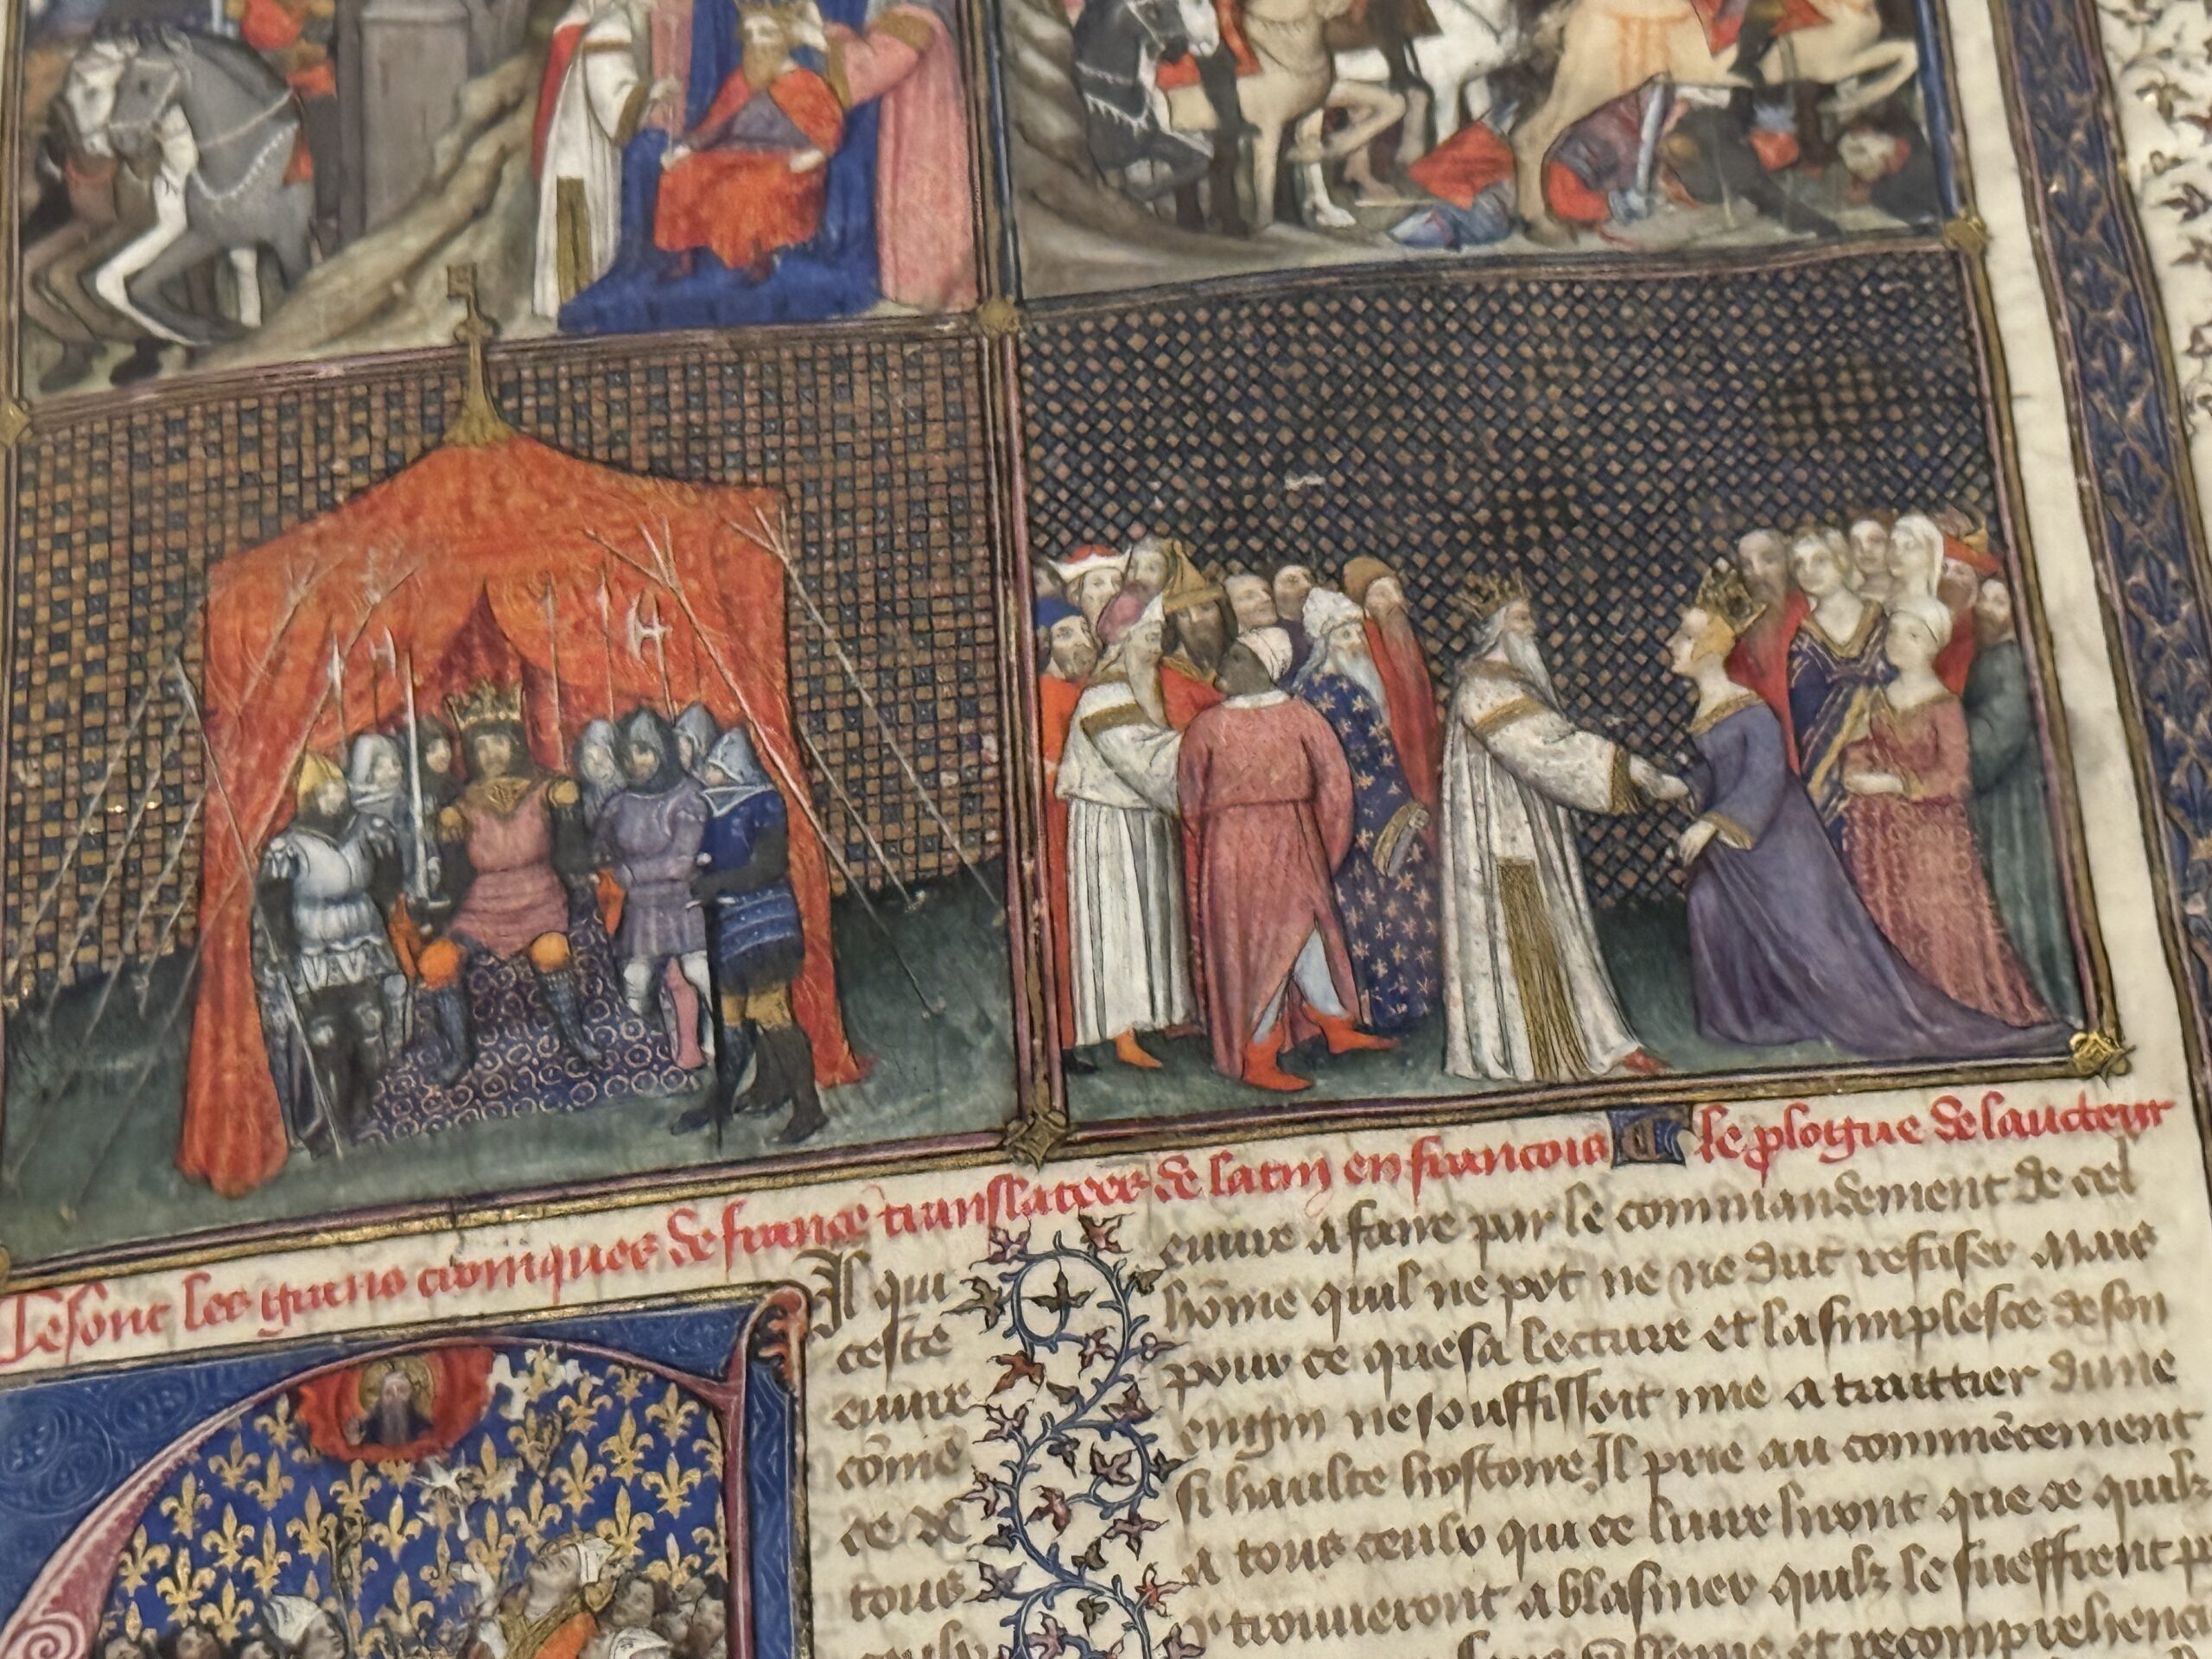 Ce sont les grans croniques de france translatees de latin en francois C le plogue de laucteur
Il qui
ceste
euure
cōme
ce A
tous
ceulx
euure a faire par le commandement de cel
hōme quil ne pot ne ne dut refuser Mais
pour ce que sa lecture et la simplesce de son
engin ne souffissoit mie a traittier dune
si haulte hystoire Il prie au commēcement
a tous ceulx qui ce liure liront que ce quilz
y trouueront a blasmer quilz le sueffrent p